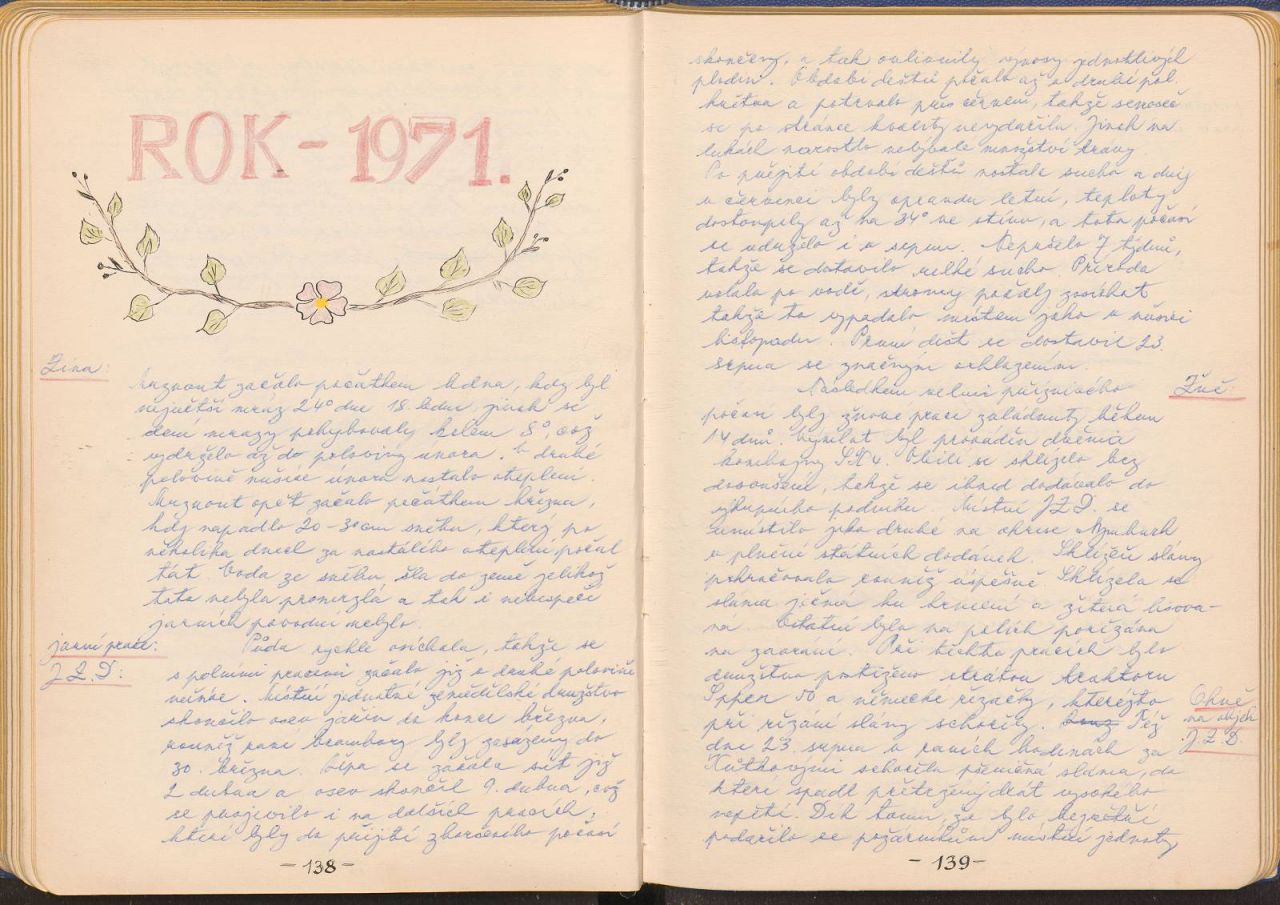 ROK - 1971.
Zima:
Mrznout začalo počátkem ledna, kdy byl
největší mráz 24° dne 18. ledna jinak se
denní mrazy pohybovaly kolem 8°, což
vydrželo až do poloviny února. V druhé
polovině měsíce února nastalo oteplení.
Mrznout opět začalo počátkem března,
kdy napadlo 20-30 cm sněhu, který po
několika dnech za nastálého oteplení počal
tát. Voda ze sněhu šla do země jelikož
tato nebyla promrzlá a tak i nebezpečí
jarních povodní nebylo.
jarní práce:
J.Z.D:
Půda rychle osichala, takže se
s polními pracemi začalo již v druhé polovině
měsíce. Místní jednotné zemědělské družstvo
skončilo osev jařin do konce března,
rovněž rané brambory byly zasázeny do
30. března. Řepa se začala sít již
2 dubna a osev skončil 9. dubna, což
se projevilo i na dalších pracích,
které byly do přijití zhoršeného počasí
- 138 -
skončeny, a tak ovlivnily výnosy jednotlivých
plodin. Období dešťů počalo až v druhé pol.
května a potrvalo přes červen, takže senoseč
se po stránce kvality nevydařila. Jinak na
lukách narostlo nebývalé množství trávy.
Po přejití období dešťů nastalo sucho a dny
v červenci byly opravdu letní, teploty
dostoupily až na 34° ve stínu, a toto počasí
se udrželo i v srpnu. Nepršelo 7 týdnů,
takže se dostavilo velké sucho. Příroda
volala po vodě, stromy počaly zasichat
takže to vypadalo místem jako v měsíci
listopadu. První déšť se dostavil 23.
srpna se značným ochlazením.
Žně:
Následkem velmi příznivého
počasí byly žňové práce zvládnuty během
14 dnů. Výmlat byl prováděn dvěma
kombajny SK 4. Obilí se sklízelo bez
dosoušení, takže se ihned dodávalo do
výkupního podniku. Místní J.Z.D. se
umístilo jako druhé na okrese Nymburk
v plnění státních dodávek. Sklizeň slámy
pokračovala rovněž úspěšně. Sklízela se
sláma ječná ku krmení a žitná lisova-
ná. Ostatní byla na polích pořezána
na zaorání. Při těchto pracích bylo
družstvo postiženo ztrátou traktoru
50 a německé řezačky, kterážto
při řezání slámy schořely. Též
Oheň
na objek.
J.Z.D.
dne 23. srpna v ranních hodinách za
schořela pšeničná sláma, do
které spadl přetržený drát vysokého
napětí. Dík tomu, že bylo bezvětří
podařilo se požárníkům místní jednoty
- 139 -